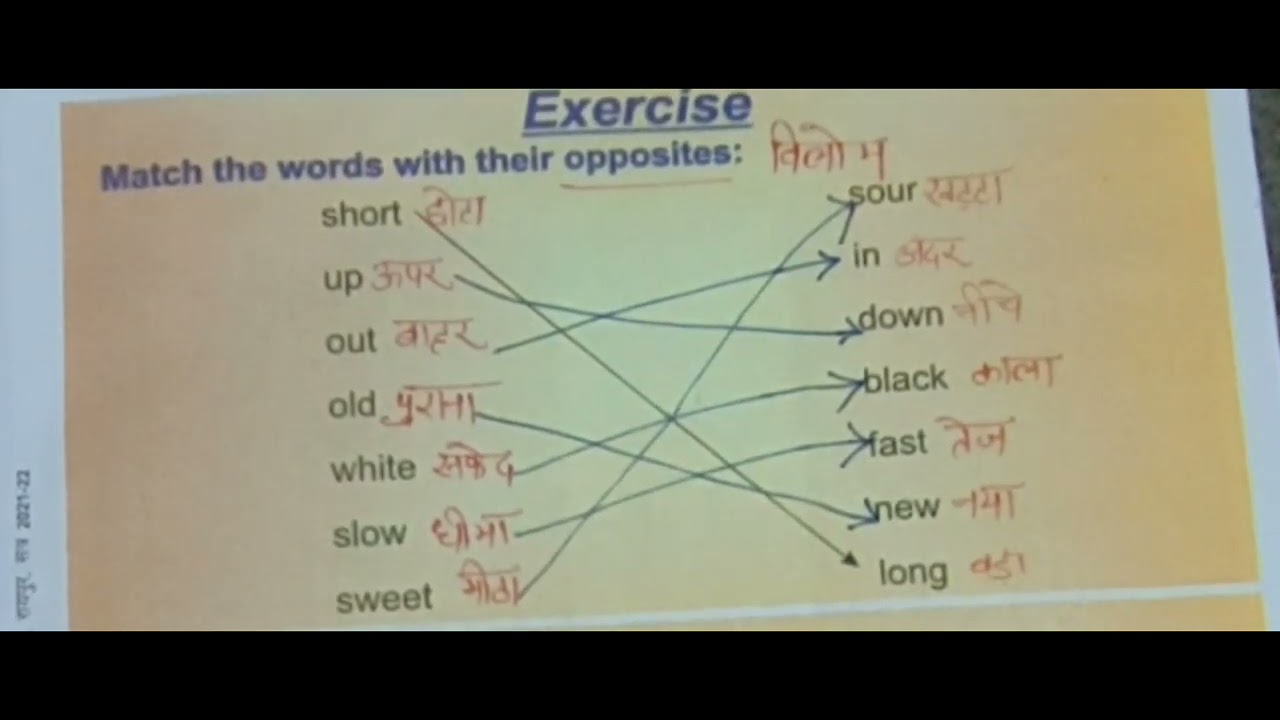 Exercise
Match the words with their opposites: विलोम
short छोटा sour खट्टा
up ऊपर in अंदर
out बाहर down नीचे
old पुराना black काला
white सफेद fast तेज
slow धीमा new नया
sweet मीठा long बड़ा
2021-22